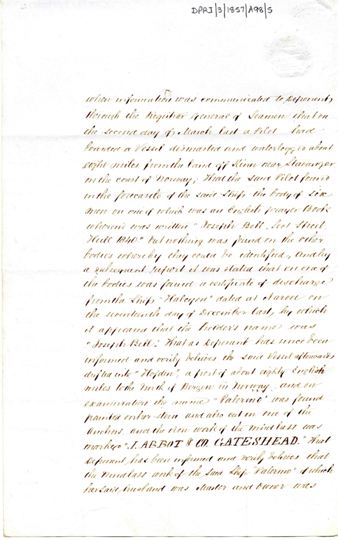 DPRI/3/1857/A98/5
when information was communicated to Deponent,
through the Registrar General of Seamen that on
the second day of March last a Pilot had
boarded a Vessel dismasted and waterlogged about
eight miles from the land off near Stavanger
on the coast of Norway, that the said Pilot found
in the forecastle of the said Ship the body of six
men on one of which was an English prayer Book
wherein was written "Joseph Bell, Street
Hull 1840." but nothing was found on the other
bodies whereby they could be identified, and by
a subsequent report it was stated that on one of
the bodies was found a certificate of discharge
from the Ship "Halcyon" dated at on
the seventeenth day of December last, by which
it appeared that the holder's name was
"Joseph Bell": that as Deponent has since been
informed and verily believes the said Vessel afterwards
drifted into a port of about eighty English
miles to the North of Bergen in Norway, and on
examination the name "Palermo" was found
painted on her stern and also cut on one of the
and the iron work of the windlass was
marked "J. ABBOT & CO. GATESHEAD." That
Deponent, has been informed and verily believes that
the windlass work of the said Ship "Palermo" of which
her said husband was Master and owner was